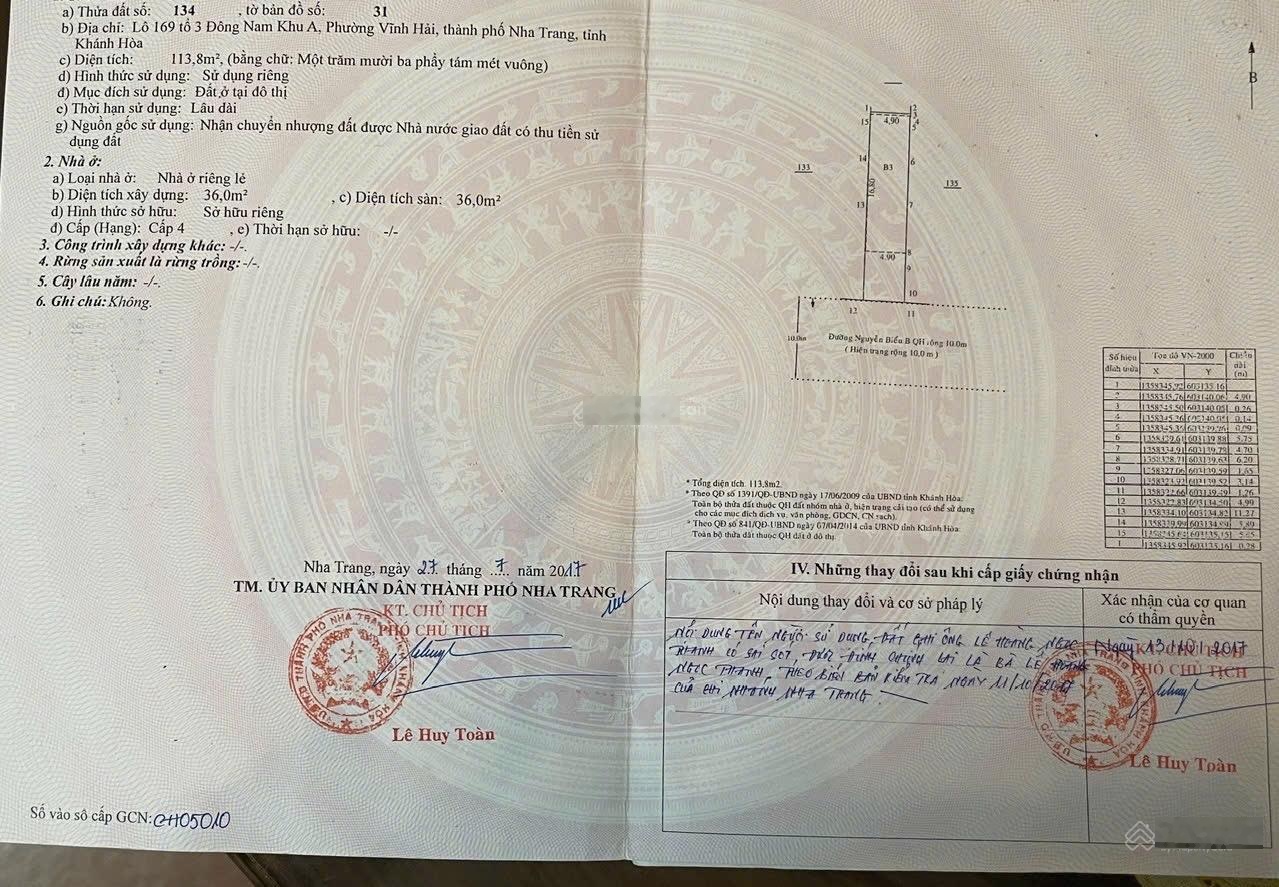 a) Thửa đất số: 134 , tờ bản đồ số: 31
b) Địa chỉ: Lô 169 tổ 3 Đông Nam Khu A, Phường Vĩnh Hải, thành phố Nha Trang, tỉnh
Khánh Hòa
c) Diện tích: 113,8m², (bằng chữ: Một trăm mười ba phẩy tám mét vuông)
d) Hình thức sử dụng: Sử dụng riêng
đ) Mục đích sử dụng: Đất ở tại đô thị
e) Thời hạn sử dụng: Lâu dài
g) Nguồn gốc sử dụng: Nhận chuyển nhượng đất được Nhà nước giao đất có thu tiền sử
dụng đất
2. Nhà ở:
a) Loại nhà ở: Nhà ở riêng lẻ
b) Diện tích xây dựng: 36,0m² , c) Diện tích sàn: 36,0m²
d) Hình thức sở hữu: Sở hữu riêng
đ) Cấp (Hạng): Cấp 4 , e) Thời hạn sở hữu: -/-
3. Công trình xây dựng khác: -/-.
4. Rừng sản xuất là rừng trồng: -/-.
5. Cây lâu năm: -/-.
6. Ghi chú: Không.
Nha Trang, ngày 27 tháng 7 năm 2017
TM. ỦY BAN NHÂN DÂN THÀNH PHỐ NHA TRANG
KT. CHỦ TỊCH
PHÓ CHỦ TỊCH
Lê Huy Toàn
Số vào sổ cấp GCN: CH05010
B
1
2
3
4
5
15
4,90
14
B3
6
133
135
16,80
13
7
8
4.90
9
10
12
11
10.0m
Đường Nguyễn Biểu B QH rộng 10.0m
( Hiện trạng rộng 10,0 m )
Số hiệu đỉnh thửa Tọa độ VN-2000 Chiều dài (m)
X Y
1 1358345.92 603135.16
2 1358345.76 603140.06 4.90
3 603140.05 0.26
4 0.14
5 0.09
6 603139.88 5.75
7 1358334.91 603139.78 4.70
8 1358328.71 603139.63 6.20
9 1358327.06 603139.59 1.65
10 1358323.92 603139.52 3.14
11 1358322.66 603139.49 1.26
12 1358322.83 603134.50 4.99
13 1358334.10 603134.82 11.27
14 1358339.99 603134.89 5.89
15 603135.15 5.65
1 1358345.92 603135.16 0.28
* Tổng diện tích. 113.8m2.
* Theo QĐ số 1391/QĐ-UBND ngày 17/06/2009 của UBND tỉnh Khánh Hòa:
Toàn bộ thửa đất thuộc QH đất nhóm nhà ở, hiện trạng cải tạo (có thể sử dụng
cho các mục đích dịch vụ, văn phòng, GDCN, CN sạch).
* Theo QĐ số 841/QĐ-UBND ngày 07/04/2014 của UBND tỉnh Khánh Hòa:
Toàn bộ thửa đất thuộc QH đất ở đô thị.
IV. Những thay đổi sau khi cấp giấy chứng nhận
Nội dung thay đổi và cơ sở pháp lý
Xác nhận của cơ quan
có thẩm quyền
NỘI DUNG TÊN NGƯỜI SỬ DỤNG ĐẤT GHI ÔNG LÊ HOÀNG NGỌC
THANH CÓ SAI SÓT, ĐƯỢC ĐÍNH CHÍNH LẠI LÀ BÀ LÊ HOÀNG
NGỌC THANH, THEO BIÊN BẢN KIỂM TRA NGÀY 11/10/2017
CỦA CHI NHÁNH NHA TRANG.
Ngày 13/10/2017
KT. CHỦ TỊCH
PHÓ CHỦ TỊCH
Lê Huy Toàn